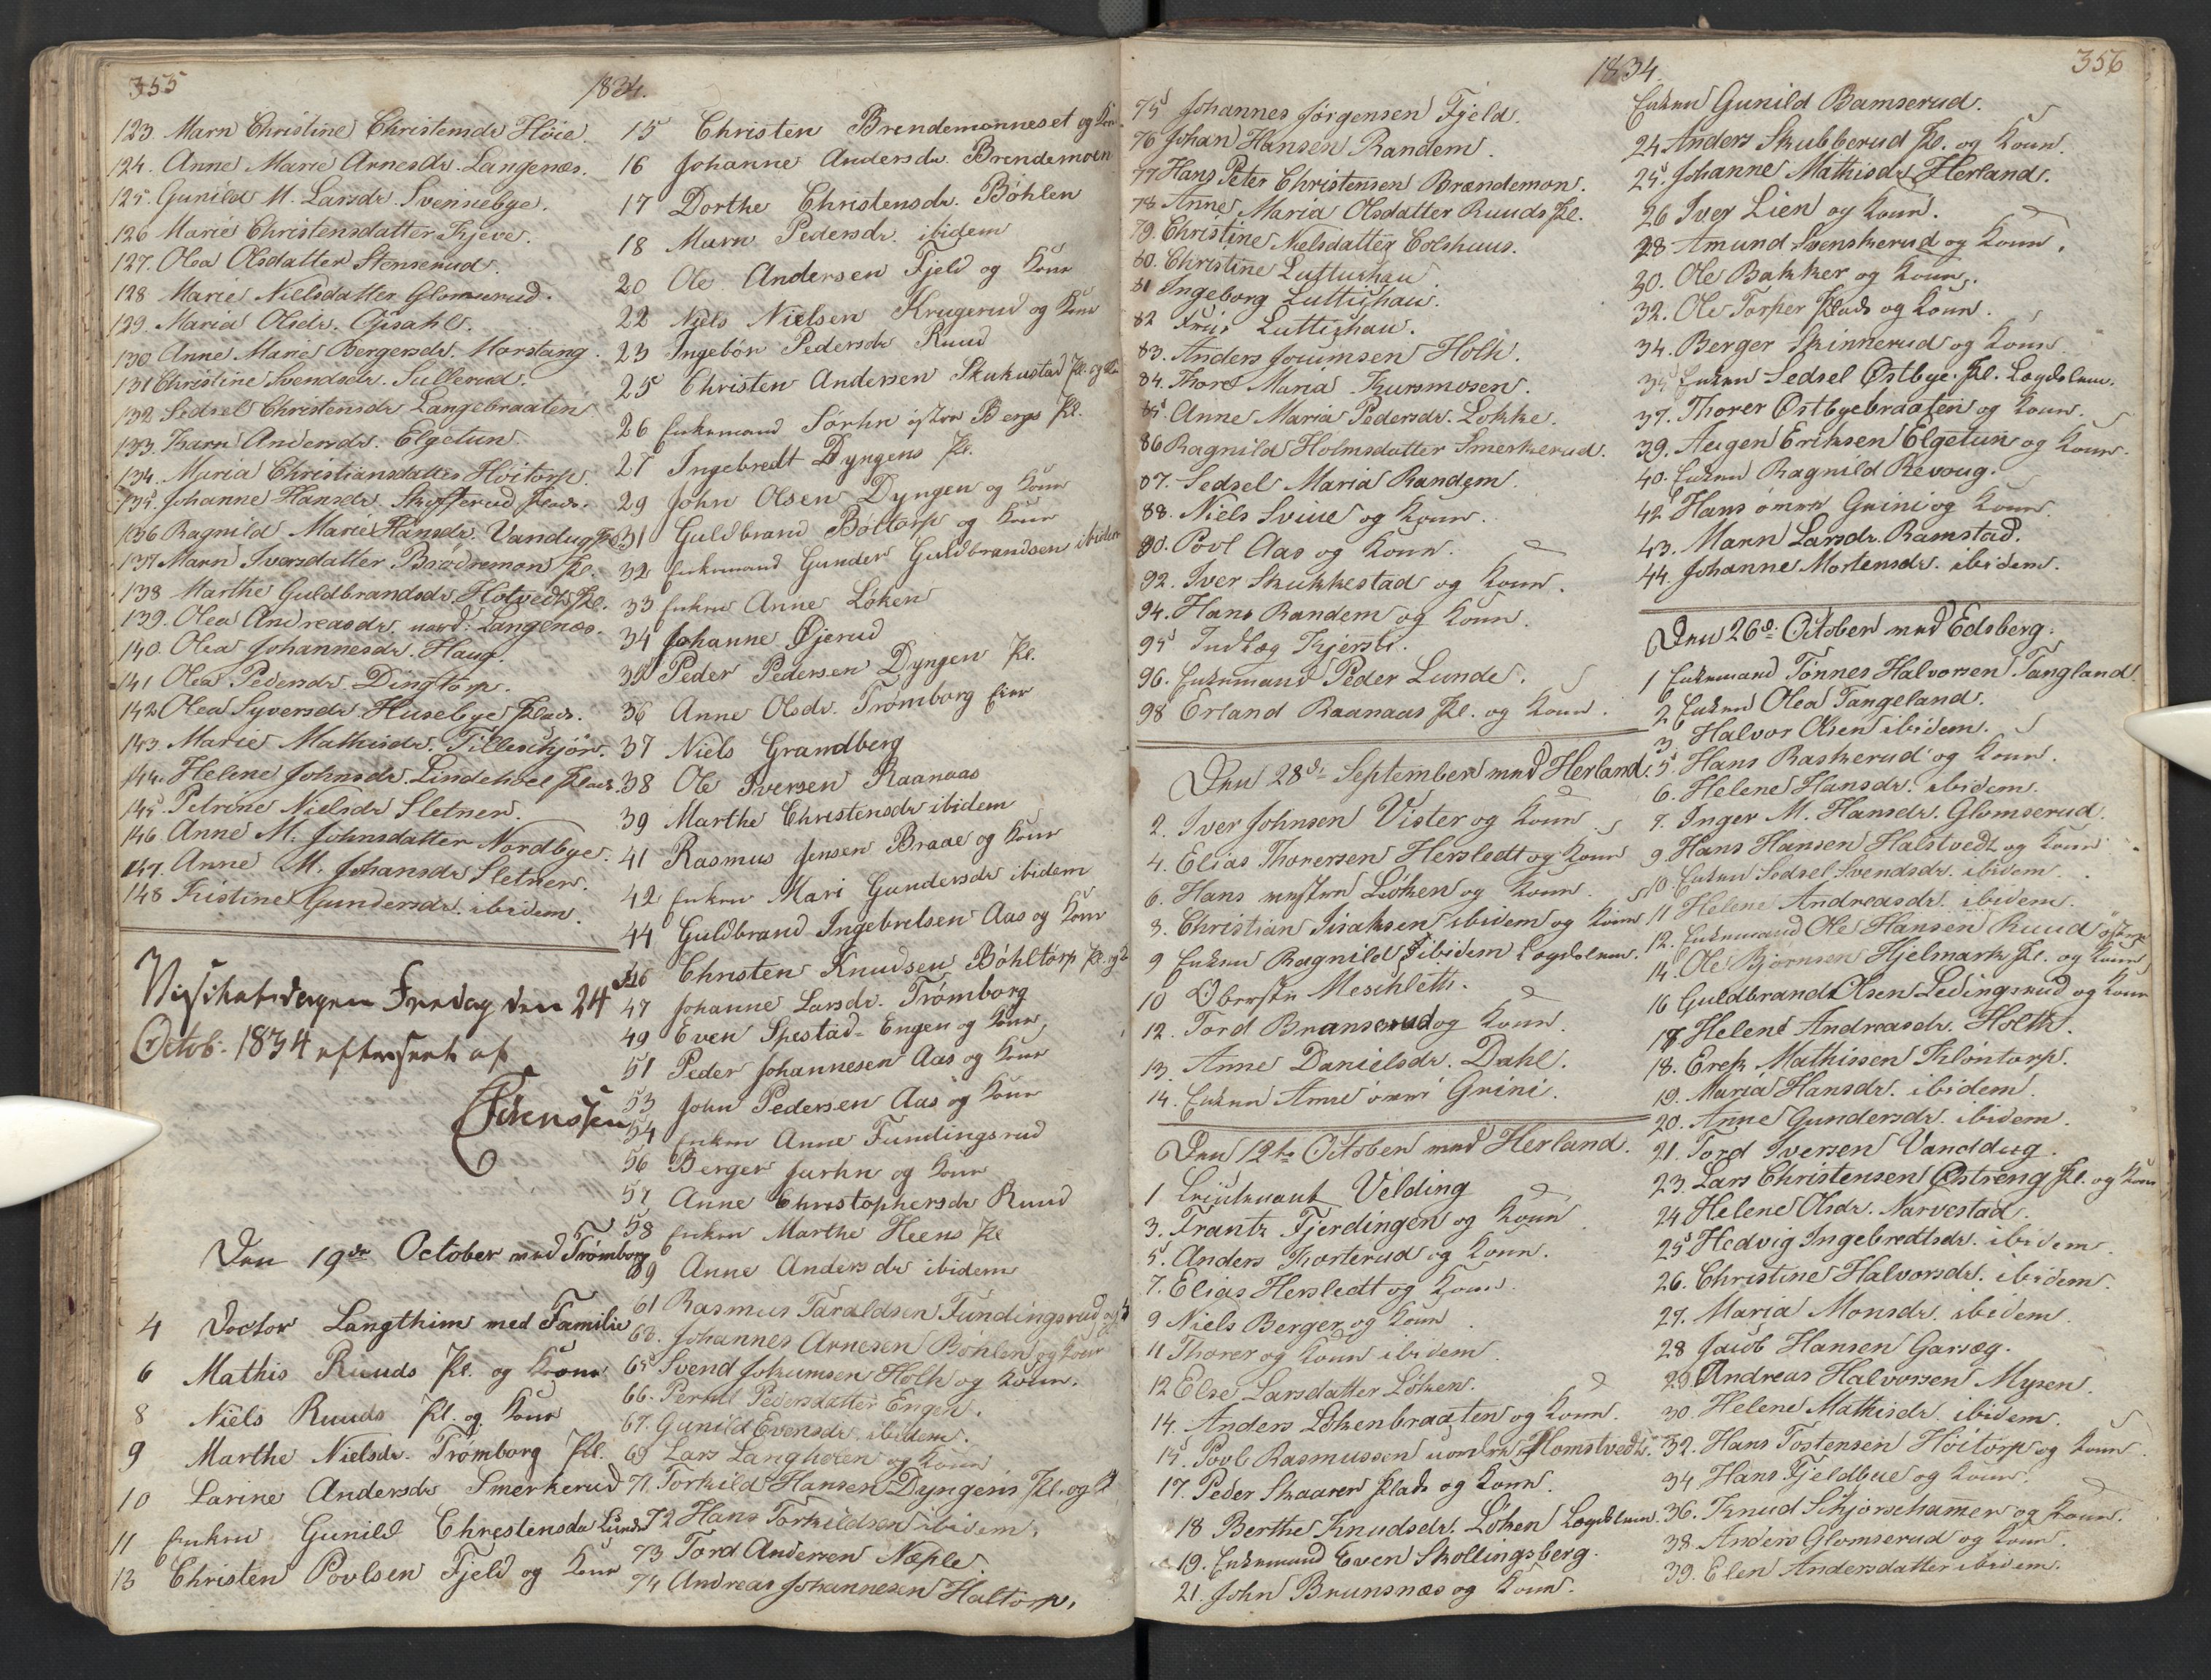 355
1834.
123 Marn Christine Christensdr Höie.
124. Anne Marie Arnesdr. Langenæs.
125. Gunild M. Larsdr. Svennebye.
126 Marie Christensdatter Kjeve.
127. Olea Olsdatter Stenserud.
128 Marie Nielsdatter Glomserud.
129. Maria Olsdr.
130 Anne Marie Bergersdr. Morstang.
131 Christine Svendsdr. Sullerud.
132 Sidsel Christensdr Langebraaten
133. Karn Andersdr. Elgetun.
134. Maria Christiansdatter Höitorp.
135. Johanne Hansdr. Skofterud Plads.
136 Ragnild Marie Hansdr. Vandug
137 Marn Iversdatter Brødremon Pl.
138 Marthe Guldbrandsdr. Hotvedt Pl.
139. Olea Andreasdr. nord: Langenæs.
140. Olea Johannesdr. Haug.
141 Olea Pedersdr. Dingtorp.
142 Olea Syversdr. Husebye Plads.
143. Marie Mathisdr. Tilleschjör.
144. Helene Johnsdr. Lindehoel Plads.
145. Petrine Nielsdr Sletner.
146. Anne M. Johnsdatter Nordbye.
147. Anne M. Johansdr Sletner.
148 Kistine Gundersdr. ibidem.
Visitatsdagen Fredag den 24
Octob. 1834 efterseet af
Den 19de October med Trömborg
4 Doctor Langthim med Familie
6 Mathis Ruuds Pl. og Kone
8 Niels Ruuds Pl. og Kone
9 Marthe Nielsdr. Trömborg Pl.
10 Larine Andersdr Smerkerud
11 Enken Gunild Christensdr Lunde
13 Christen Povlsen Fjeld og Kone
15 Christen Brendemonneset og Kone
16 Johanne Andersdr. Brendemoen
17 Dorthe Christensdr. Böhlen
18 Marn Pedersdr. ibidem
20 Ole Andersen Fjeld og Kone
22 Niels Nielsen Krugerud og Kone
23 Ingebör Pedersdr Ruud
25 Christen Andersen Skukustad Pl. og Kone
26 Enkemand Sörhn östre Bergs Pl.
27 Ingebredt Dyngens Pl.
29 John Olsen Dyngen og Kone
31 Guldbrand Böltorp og Kone
32 Enkemand Gunder Guldbrandsen ibidem
33 Enken Anne Löken
34 Johanne Öjerud
35 Peder Pedersen Dyngen Pl.
36 Anne Olsdr. Trömborg Eier
37 Niels Grandberg
38 Ole Iversen Raanaas
39 Marthe Christensdr ibidem
41 Rasmus Jensen Braae og Kone
42 Enken Mari Gundersdr ibidem
44 Guldbrand Ingebretsen Aas og Kone
46 Christen Knudsen Böhltorp Pl. og K
47 Johanne Larsdr. Trömborg
49 Even Spestad-Engen og Kone
51 Peder Johannesen Aas og Kone
53 John Pedersen Aas og Kone
54 Enken Anne Fundingsrud
56 Berger Jarhn og Kone
57 Anne Christophersdr Ruud
58 Enken Marthe Heens Pl
59 Anne Andersdr ibidem
61 Rasmus Taraldsen Fundingsrud og K
63. Johannes Arnesen Böhlen og Kone
65 Svend Johumsen Holth og Kone.
66. Pernil Pedersdatter Engen.
67. Gunild Evensdr. ibidem.
69 Lars Langholen og Kone
71. Torkild Hansen Dyngens Pl. og K
72 Hans Torkildsen ibidem.
73 Tord Andersen Næple.
74 Andreas Johannesen Haltorp.
1834.
356
75 Johannes Jörgensen Fjeld.
76 Johan Hansen Randem.
77 Hans Peter Christensen Brændemon.
78 Anne Maria Olsdatter Ruuds Pl.
79. Christine Nielsdatter Colshuus.
80. Christine Luttichau
81 Ingeborg Luttichau.
82 Frue Luttichau.
83. Anders Joumsen Holth.
84. Thore Maria Kursmosen.
85. Anne Maria Pedersdr. Lökke.
86 Ragnild Holmsdatter Smerkerud.
87. Sedsel Maria Randem.
88. Niels Sviue og Kone.
90. Povl Aas og Kone.
92. Iver Skukkestad og Kone.
94. Hans Randem og Kone.
95 Indlæg Kjersti.
96. Enkemand Peder Lunde.
98 Erland Raanaas Pl. og Kone.
Den 28de September med Herland.
2. Iver Johnsen Vister og Kone
4. Elias Thorersen Hersledt og Kone
6. Hans vestre Löken og Kone.
8. Christian Isaksen ibidem og Kone
9 Enken Ragnild ibidem Lægdslem.
10 Oberste Meschleth.
12. Tord Branserud og Kone.
13. Anne Danielsdr. Dahl.
14. Enken Anne övre Grini.
Den 12te October med Herland.
1 Leieutenant Velding
3. Frantz Fjerdingen og Kone
5. Anders Korterud og Kone.
7. Elias Hersledt og Kone.
9 Niels Berger og Kone
11 Thorer og Kone ibidem
12 Else Larsdatter Löken.
14. Anders Lökenbraaten og Kone.
15. Povl Rasmussen nordre Homstvedt.
17. Peder Skaarer Plads og Kone.
18 Berthe Knudsdr. Löken Lægdslem.
19. Enkemand Even Skollingsberg.
21. John Brunsnæs og Kone.
Enken Gunild Bamserud.
24 Anders Skubberud Pl. og Kone.
25. Johanne Mathisdr Herland.
26 Iver Lien og Kone.
28 Amund Svenskerud og Kone.
30. Ole Bakker og Kone.
32. Ole Torper Plads og Kone.
34. Berger Skinnerud og Kone
35 Enken Sedsel Østbye Pl. Lægdslem.
37. Thorer Østbyebraaten og Kone.
39. Augen Eriksen Elgetun og Kone.
40. Enken Ragnild Revoug.
42 Hans övre Grini og Kone.
43. Marn Larsdr. Ramstad.
44. Johanne Mortensdr. ibidem.
Den 26de October med Edsberg.
1 Enkemand Tönnes Halvorsen Tangland.
2 Enken Olea Tangeland.
3. Halvor Olsen ibidem.
5. Hans Raskerud og Kone.
6. Helene Hansdr. ibidem.
7. Inger M. Hansdr. Glomserud.
9. Hans Hansen Halstvedt og Kone
10 Enken Sedsel Svendsdr. ibidem.
11 Helene Andreasdr. ibidem.
12. Enkemand Ole Hansen Ruud östre
14. Ole Björnsen Hjelmark Pl. og Kone
16 Guldbrand Olsen Ledingsrud og Kone
17 Helene Andreasdr. Holth.
18. Erek Mathissen Klöntorp.
19. Maria Hansdr. ibidem.
20. Anne Gundersdr. ibidem.
21. Tord Iversen Vanddug.
23. Lars Christensen Østreng Pl. og Kone
24 Helene Olsdr. Narvestad.
25 Hedvig Ingebredtsdr. ibidem.
26. Christine Halvorsdr. ibidem.
27. Maria Monsdr. ibidem
28 Jacob Hansen Garsæg.
29. Andreas Halvorsen Mysen.
30. Helene Mathisdr. ibidem.
32. Hans Tostensen Höitorp og Kone
34 Hans Fjeldbue og Kone.
36. Knud Skjorschamer og Kone.
38. Anders Glomserud og Kone.
39. Elen Andersdatter ibidem.